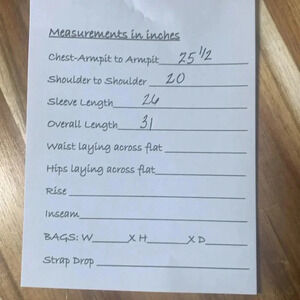 Measurements in inches
Chest-Armpit to Armpit 25 1/2
Shoulder to Shoulder 20
Sleeve Length 26
Overall Length 31
Waist laying across flat
Hips laying across flat
Rise
Inseam
BAGS: W X H X D
Strap Drop